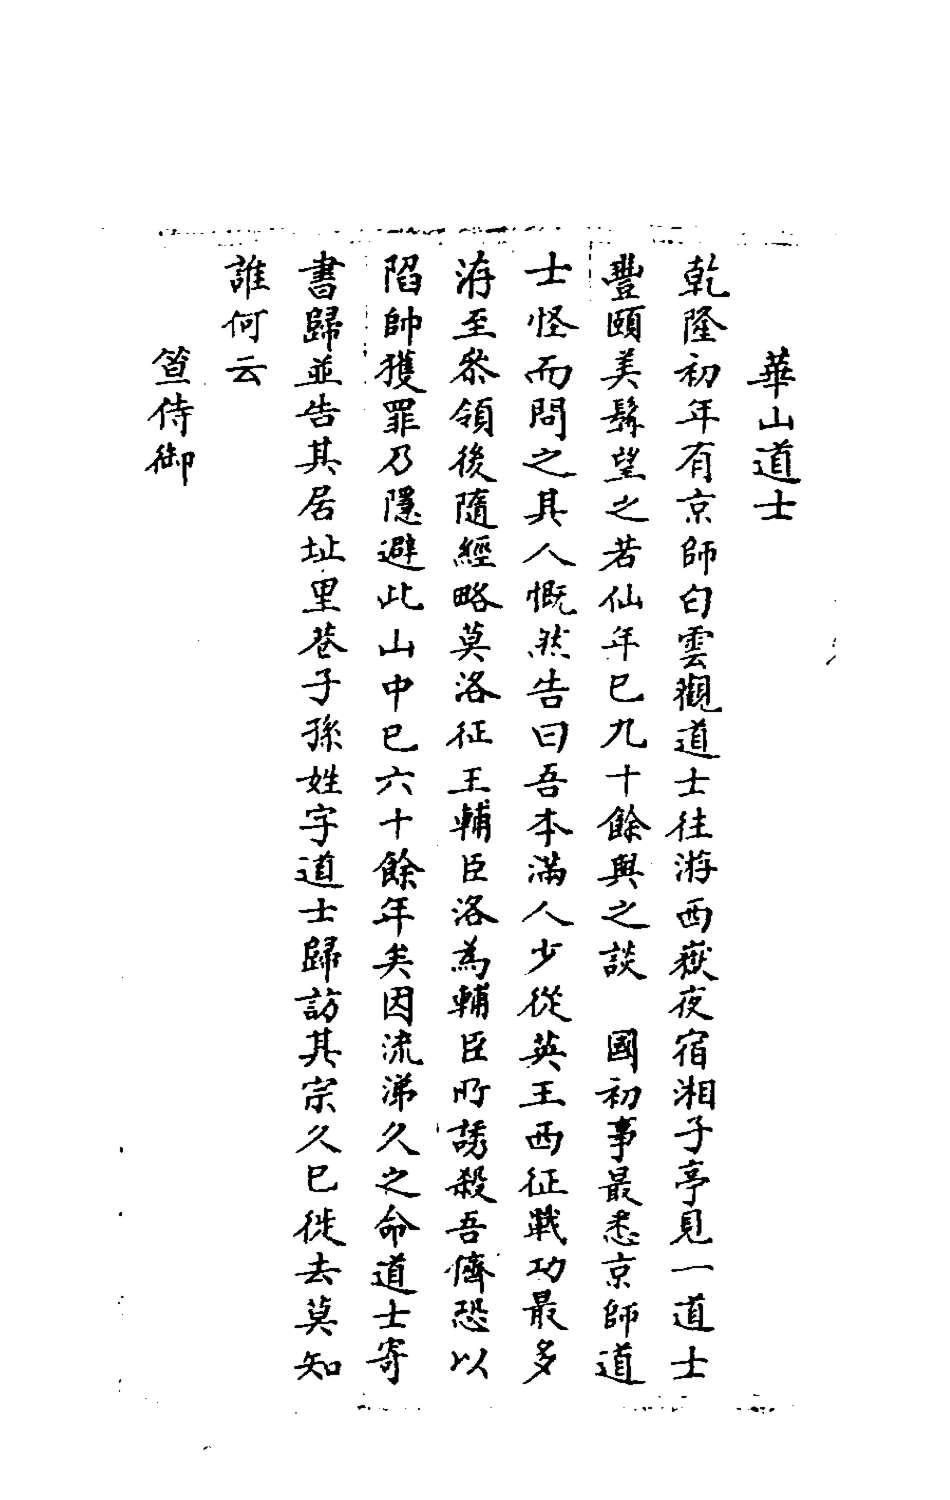 華山道士
乾隆初年有京師白雲觀道士往游西嶽夜宿湘子亭見一道士
豐頤美髯望之若仙年已九十餘與之談　國初事最悉京師道
士怪而問之其人慨然告曰吾本滿人少從英王西征戰功最多
洊至叅領後隨經略莫洛征王輔臣洛為輔臣所誘殺吾儕恐以
陷帥獲罪乃隱避此山中已六十餘年矣因流涕久之命道士寄
書歸並告其居址里巷子孫姓字道士歸訪其宗久已徙去莫知
誰何云
笪侍御